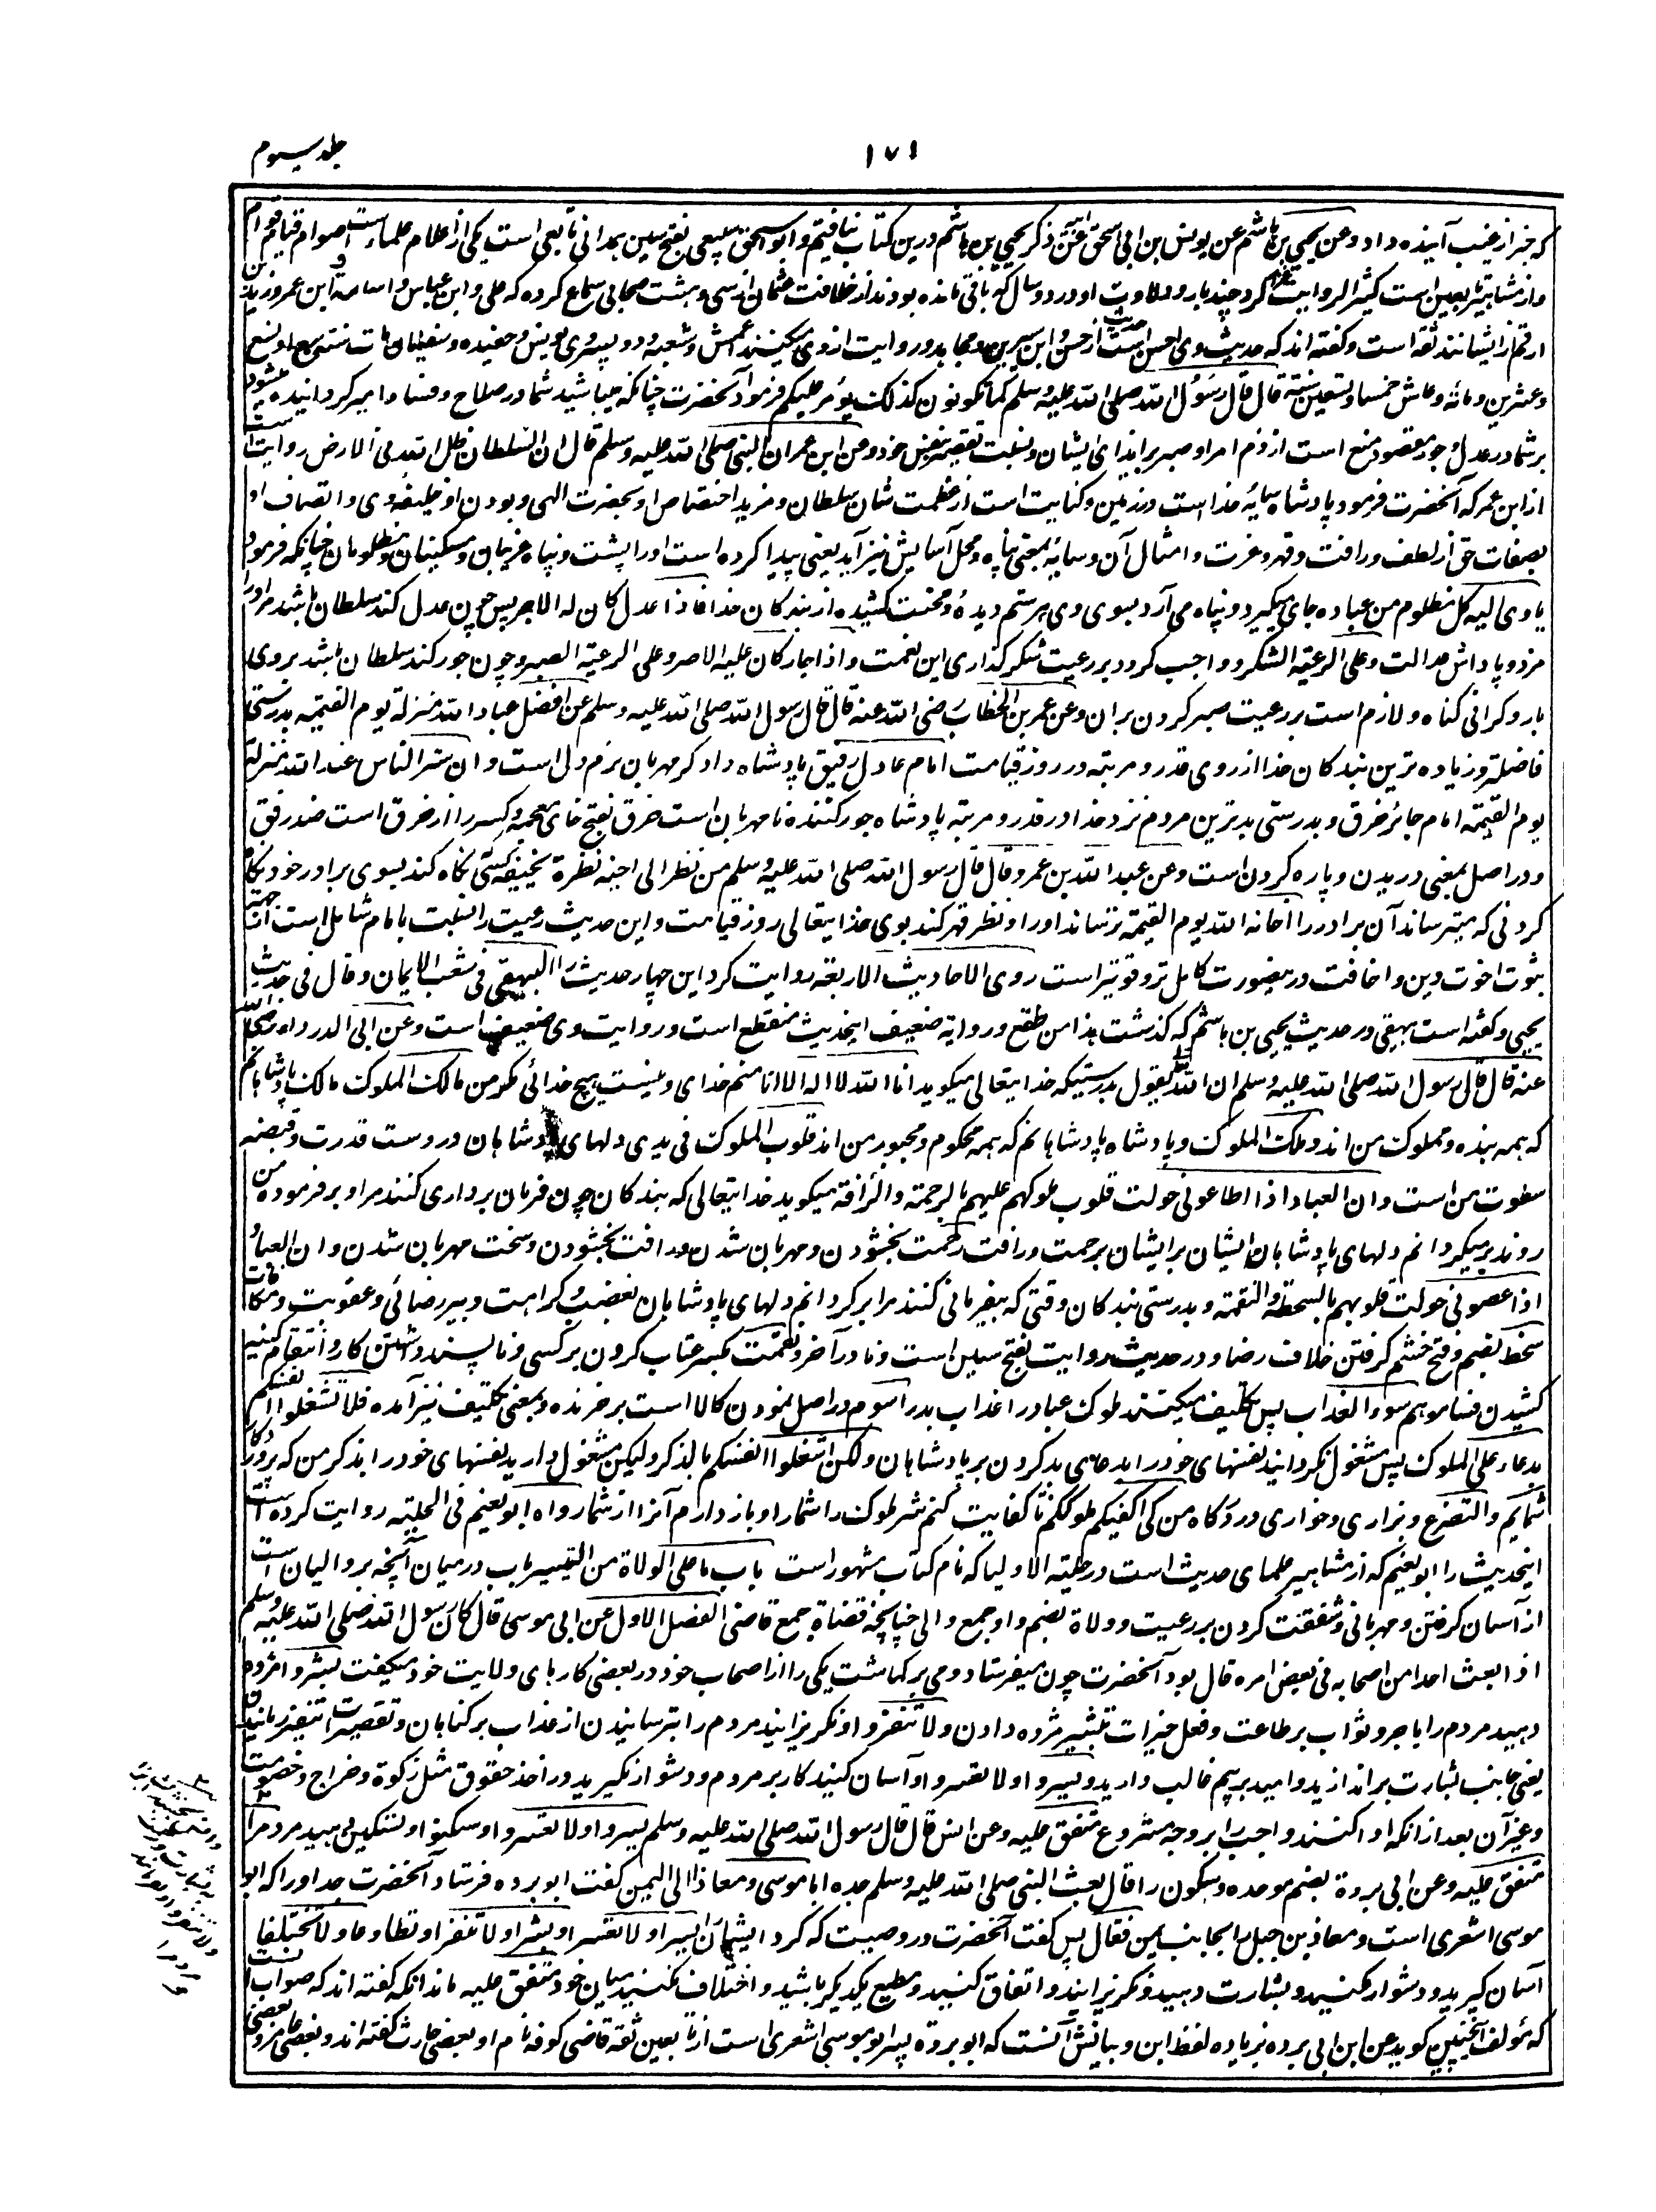 جلد سیوم
۱۷۱
که خبر از غیب آینده داد وعن یحیی بن هاشم عن یونس بن ابی اسحق عن ابیه ذکر یحیی بن هاشم درین کتاب نیافتیم و ابو اسحق سبیعی بفتح سین همدانی تابعی است یکی از اعلام علماء است صوام قوام
و از مشاهیر تابعین است کثیر الروایت کرد چند بار و ولادت او در دو سال که باقی مانده بودند از خلافت عثمان از سی و هشت صحابی سماع کرده که علی و ابن عباس و اسامة و ابن عمر و زید بن
ارقم از ایشانند ثقه است و گفته اند که حدیث وی احسن است از حسن و ابن سیرین و مجاهد و روایت ازوی میکنند اعمش و شعبه و دو پسر وی یونس و حفیده و سفیانان مات سنته سبع او تسع
وعشرین و مائه و عاش خمسا و تسعین سنة قال قال رسول الله صلی الله علیه وسلم کما تکونون کذلک یؤمر علیکم فرمود آنحضرت چنانکه میباشید شما در صلاح و فساد امیر گردانیده میشود
بر شما در عدل و جور مقصود منع است از ذم امرا و صبر بر ایذای ایشان و نسبت تقصیر بنفس خود وعن ابن عمر ان النبی صلی الله علیه وسلم قال ان السلطان ظل الله فی الارض روایت است
از ابن عمر که آنحضرت فرمود پادشاه سایهٔ خدا است در زمین و کنایت است از عظمت شان سلطان و مزید اختصاص او بحضرت الهی و بودن او خلیفهٔ وی و اتصاف او
بصفات حق از لطف و رافت و قهر و عزت و امثال آن و سایه بمعنی پناه و محل آسایش نیز آید یعنی پیدا کرده است او را پشت و پناه غریبان و مسکینان و مظلومان چنانکه فرمود
یاوی الیه کل مظلوم من عباده جای میگیرد و پناه می آرد بسوی وی هر ستم دیده و محنت کشیده از بندگان خدا فاذا عدل کان له الاجر پس چون عدل کند سلطان باشد مر او را
مزد و پاداش عدالت وعلی الرعیة الشکر و واجب گردد بر رعیت شکر گذاری این نعمت واذا جار کان علیه الاصر وعلی الرعیة الصبر و چون جور کند سلطان باشد بروی
بار و گرانی گناه و لازم است بر رعیت صبر کردن بران وعن عمر بن الخطاب رضی الله عنه قال قال رسول الله صلی الله علیه وسلم عن افضل عباد الله منزلة یوم القیمة بدرستی
فاضلتر و زیاده ترین بندگان خدا از روی قدر و مرتبه در روز قیامت امام عادل رفیق پادشاه داد گر مهربان نرم دل است وان شر الناس عند الله منزلة
یوم القیمة امام جائر خرق و بدرستی بدترین مردم نزد خدا در قدر و مرتبه پادشاه جور کننده نامهربان است خرق بفتح خای معجمه و کسر را از خرق است ضد رفق
و در اصل بمعنی دریدن و پاره کردن است وعن عبد الله بن عمرو قال قال رسول الله صلی الله علیه وسلم من نظر الی اخیه نظرة یخیفه کسی نگاه کند بسوی برادر خود نگاه
کردنی که بترساند آن برادر را اخافه الله یوم القیمة بترساند او را و نظر قهر کند بوی خدایتعالی روز قیامت و این حدیث رعیت را نسبت بامام شامل است از جهة
ثبوت اخوت دین و اخافت درینصورت کامل تر و قوی تر است روی الاحادیث الاربعة روایت کرد این چهار حدیث را البیهقی فی شعب الایمان وقال فی حدیث
یحیی و گفته است بیهقی در حدیث یحیی بن هاشم که گذشت هذا منقطع وروایه ضعیف اینحدیث منقطع است و روایت وی ضعیف است وعن ابی الدرداء رضی الله
عنه قال قال رسول الله صلی الله علیه وسلم ان الله تعالی یقول بدرستیکه خدایتعالی میگوید انا الله لا اله الا انا منم خدای و نیست هیچ خدائی مگر من مالک الملوک مالک پادشاهانم
که همه بنده و مملوک من اند وملک الملوک و پادشاه پادشاهانم که همه محکوم و مجبور من اند قلوب الملوک فی یدی دلهای پادشاهان در دست قدرت و قبضه
سطوت من است وان العباد اذا اطاعونی حولت قلوب ملوکهم علیهم بالرحمة والرأفة میگوید خدایتعالی که بندگان چون فرمان برداری کنند مرا و بر فرموده من
روند بر میگردانم دلهای پادشاهان ایشان بر ایشان برحمت و رافت رحمت بخشودن و مهربان شدن و رافت بخشودن و سخت مهربان شدن وان العباد
اذا عصونی حولت قلوبهم بالسخطة والنقمة و بدرستی بندگان وقتی که بیفرمانی کنند مرا بر گردانم دلهای پادشاهان بغضب و کراهت و بیرضائی و عقوبت و مکافات
سخط بضم و فتح خشم گرفتن خلاف رضا و در حدیث روایت بفتح سین است و تا در آخر و نقمت بکسر عتاب کردن بر کسی و ناپسند داشتن کار و انتقام کینه
کشیدن فساموهم سوء العذاب پس تکلیف میکنند ملوک عباد را عذاب بد را سوم در اصل نمودن کالا است بر خرنده و بمعنی تکلیف نیز آمده فلا تشغلوا انفسکم
بدعاء علی الملوک پس مشغول نگردانید نفسهای خود را بدعای بد کردن بر پادشاهان ولکن اشغلوا انفسکم بالذکر و لیکن مشغول دارید نفسهای خود را بذکر من که پروردگار
شمایم والتضرع و بزاری و خواری در درگاه من کی اکفیکم ملوککم تا کفایت کنم شر ملوک را شما را و باز دارم آنرا از شما رواه ابو نعیم فی الحلیة روایت کرده است
اینحدیث را ابو نعیم که از مشاهیر علمای حدیث است در حلیة الاولیا که نام کتاب مشهور است باب ما علی الولاة من التیسیر باب در میان آنچه بر والیان است
از آسان گرفتن و مهربانی و شفقت کردن بر رعیت و ولاة بضم واو جمع والی چنانچه قضاة جمع قاضی الفصل الاول عن ابی موسی قال کان رسول الله صلی الله علیه وسلم
اذا بعث احدا من اصحابه فی بعض امره قال بود آنحضرت چون میفرستاد و می بر گماشت یکی را از اصحاب خود در بعضی کارهای ولایت خود میگفت بشروا مژده
دهید مردم را باجر و ثواب بر طاعت و فعل خیرات تبشیر مژده دادن ولا تنفروا و نگریزانید مردم را بترسانیدن از عذاب بر گناهان و تقصیرات تنفیر رمانیدن
یعنی جانب بشارت بر انذار یدوامید بر بیم غالب دارید ویسروا ولا تعسروا و آسان کنید کار بر مردم و دشوار نگیرید در اخذ حقوق مثل زکوة و خراج و خصومت
و غیر آن بعد ازانکه ادا کنند واجب را بر وجه مشروع متفق علیه وعن انس قال قال رسول الله صلی الله علیه وسلم یسروا ولا تعسروا وسکنوا و تسکین دهید مردم را
متفق علیه وعن ابی بردة بضم موحده و سکون را قال بعث النبی صلی الله علیه وسلم جده ابا موسی ومعاذا الی الیمن گفت ابو برده فرستاد آنحضرت جد او را که ابو
موسی اشعری است و معاذ بن جبل را بجانب یمن فقال پس گفت آنحضرت در وصیت که کرد ایشان را یسرا ولا تعسرا وبشرا ولا تنفرا وتطاوعا ولا تختلفا
آسان گیرید و دشوار مکنید و بشارت دهید و مگریزانید و اتفاق کنید و مطیع یکدیگر باشید و اختلاف مکنید میان خود متفق علیه ماندانکه گفته اند که صواب آنست
که مؤلف اینچنین گوید عن ابن ابی برده بزیاده لفظ ابن و بیانش آنست که ابو برده پسر ابو موسی اشعری است از تابعین ثقه قاضی کوفه نام او بعضی حارث گفته اند و بعضی عامر و بعضی